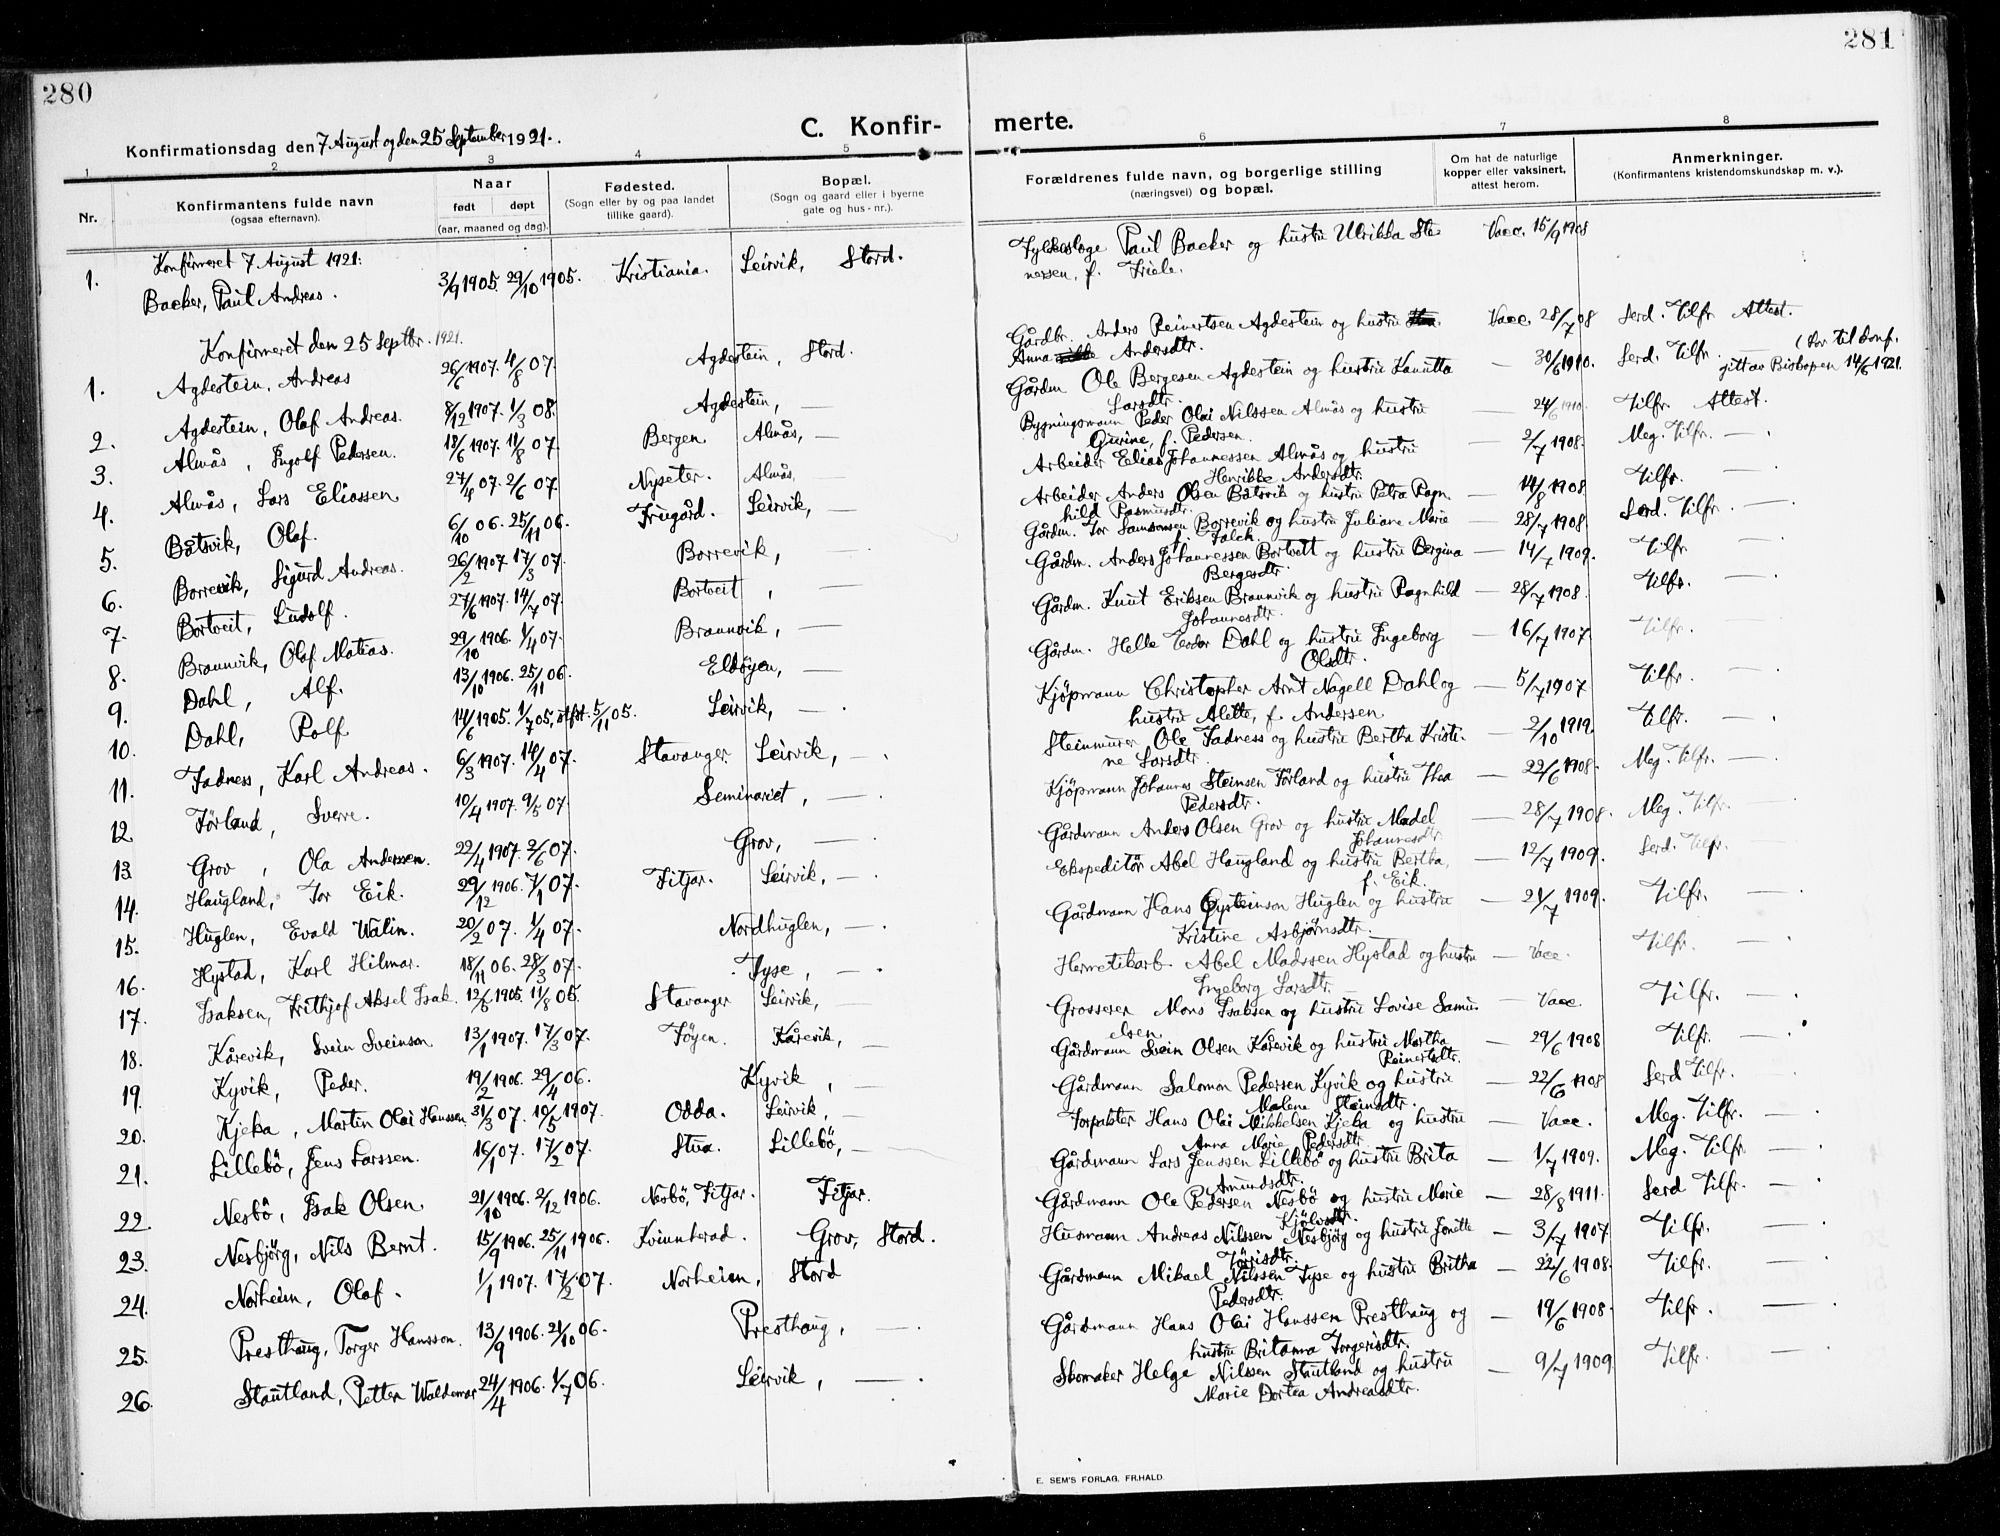 280
281
C. Konfir- merte.
Konfirmationsdag den 7 August og den 25 September 1921.
1 2 3 4 5 6 7 8
Nr.
Konfirmantens fulde navn
(ogsaa efternavn).
Naar
født døpt
(aar, maaned og dag).
Fødested.
(Sogn eller by og paa landet
tillike gaard).
Bopæl.
(Sogn og gaard eller i byerne
gate og hus-nr.).
Forældrenes fulde navn, og borgerlige stilling
(næringsvei) og bopæl.
Om hat de naturlige
kopper eller vaksinert,
attest herom.
Anmerkninger.
(Konfirmantens kristendomskundskap m. v.).
Konfirmeret 7 August 1921:
1. Backer, Paul Andreas. 3/9 1905. 29/10 1905. Kristiania. Leirvik, Stord. Paul Backer og hustru Ulrikka Ste Vacc. 15/9 1908
nersen, f. Friele.
Konfirmeret den 25 Septbr. 1921.
1. Agdestein, Andreas 26/6 1907. 4/8 07. Agdestein, Stord. Gårdbr. Anders Reinertsen Agdestein og hustru Vacc. 28/7 08 Serd. Tilfr. Attest.
Anna Andersdtr.
2. Agdestein, Olaf Andreas. 8/12 1907. 1/3 08. Agdestein, — Gårdm Ole Bergesen Agdestein og hustru Kanutta — 30/6 1910. Serd. Tilfr. — (Lov til konf.
Larsdtr. gitt av Biskopen 14/6 1921.
3. Almås, Ingolf Pedersen. 18/6 1907. 11/8 07. Bergen Almås, — Bygningsmann Peder Olai Nilssen Almås og hustru — 24/6 1910. Tilfr. Attest.
Gurine, f. Pedersen.
4. Almås, Lars Eliassen 27/4 07. 2/6 07 Nyseter. Almås, Arbeider Elias Johannessen Almås og hustru — 2/7 1908. Meg. Tilfr. — .
Henrikke Andersdtr.
5. Båtsvik, Olaf. 6/10 06. 25/11 06. Frugård. Leirvik, — Arbeider Anders Olsen Båtsvik og hustru Petra Ragn — 14/8 1908 Tilfr. —
hild Rasmusdtr.
6. Borrevik, Sigurd Andreas. 26/2 1907. 17/3 07. Borrevik, — Gårdm. Tor Samsonsen Borrevik og hustru Juliane Marie — 28/7 1908. Serd. Tilfr. —
f. Falch.
7. Bortveit, Ludolf. 27/6 1907. 14/7 07. Bortveit, — Gårdm. Anders Johannessen Bortveit og hustru Bergina — 14/7 1909. Tilfr. —
Bergesdtr.
8. Brannvik, Olaf Matias. 29/10 1906. 1/4 07. Brannvik, — Gårdm. Knut Eriksen Brannvik og hustru Ragnhild — 28/7 1908. Tilfr. —
Johannesdtr.
9. Dahl, Alf. 13/10 1906. 25/11 06. Eldøyen, — Gårdm. Helle Teodor Dahl og hustru Ingeborg — 16/7 1907. Tilfr. —
Olsdtr.
10. Dahl, Rolf 14/6 1905. 1/7 05, stfst. 5/11 05. Leirvik, — Kjöpmann Christopher Arnt Nagell Dahl og — 5/7 1907 Tilfr. —
hustru Alette, f. Andersen
11. Fadness, Karl Andreas. 6/3 1907. 14/4 07. Stavanger. Leirvik, — Steinmurer Ole Fadness og hustru Bertha Kristi- — 2/10 1919. Tilfr. —
ne Larsdtr.
12. Förland, Sverre. 10/4 1907. 9/5 07. Seminariet, — Kjöpmann Johannes Steinsen Förland og hustru Thea — 22/6 1908. Meg. Tilfr. —
Pedersdtr.
13 Grov, Ola Anderssen. 22/4 1907. 2/6 07. Grov, — Gårdmann Anders Olsen Grov og hustru Madel — 28/7 1908. Meg. Tilfr. —
Johannesdtr.
14. Haugland, Tor Eik. 29/12 1906. 7/1 07. Fitjar. Leirvik, — Ekspeditör Abel Haugland og hustru Bertha, — 12/7 1909. Serd. Tilfr. —
f. Eik.
15. Huglen, Evald Walin. 20/2 07. 1/4 07. Nordhuglen, — Gårdmann Hans Öysteinson Huglen og hustru — 21/7 1909. Tilfr. —
Kristine Asbjørnsdtr.
16. Hystad, Karl Hilmar. 18/11 06. 28/3 07. Tyse, — Hermetikarb. Abel Madssen Hystad og hustru — Vacc. Tilfr. —
Ingeborg Larsdtr.
17. Isaksen, Frithjof Aksel Isak. 12/6 1905. 11/8 05. Stavanger Leirvik, — Grosserer Mons Isaksen og hustru Lovise Samu — Vacc. Tilfr. —
elsen.
18. Kårevik, Svein Sveinson 13/1 1907. 17/3 07. Föyen. Kårevik, — Gårdmann Svein Olsen Kårevik og hustru Martha — 29/6 1908 Tilfr. —
Reinertsdtr.
19. Kyvik, Peder. 19/2 1906. 29/4 06. Kyvik, — Gårdmann Salomon Pedersen Kyvik og hustru — 22/6 1908 Serd Tilfr. —
Malene Steinsdtr.
20. Kjeka, Martin Olai Hanssen 31/3 07. 10/5 1907. Odda. Leirvik, — Hans Olai Mikkelsen Kjeka og hustru Vacc. Meg. Tilfr. —
Anna Marie Pedersdtr.
21. Lillebö, Jens Larssen. 16/1 07. 17/2 07. Stua. Lillebö, — Gårdmann Lars Jenssen Lillebö og hustru Brita — 1/7 1909. Meg. Tilfr. —
Amundsdtr.
22. Nesbö, Isak Olsen 21/10 1906. 2/12 1906. Nesbö, Fitjar. Fitjar. Gårdmann Ole Pedersen Nesbö og hustru Marie — 28/8 1911. Serd Tilfr. —
Kjölvsdtr.
23. Nesbjörg, Nils Bernt. 15/9 1906. 25/11 1906. Kvinnherad. Grov, Stord. Husmann Andreas Nilssen Nesbjörg og hustru Jonette — 3/7 1907. Tilfr. —
Jörisdtr.
24. Norheim, Olaf. 1/1 1907. 17/2 07. Norheim, Stord Gårdmann Mikael Nilssen Tyse og hustru Britha — 22/6 1908. Tilfr. —
Pedersdtr.
25. Presthaug, Torger Hansson. 13/9 1906. 21/10 06. Presthaug, — Gårdmann Hans Olai Hanssen Presthaug og — 19/6 1908. Tilfr. —
hustru Britanna Torgersdtr.
26. Stautland, Petter Waldemar 24/4 1906. 1/7 06. Leirvik, — Skomaker Helge Nilssen Stautland og hustru — 9/7 1909 Tilfr. —
Marie Dortea Andreasdtr.
E. SEM'S FORLAG. FR.HALD.